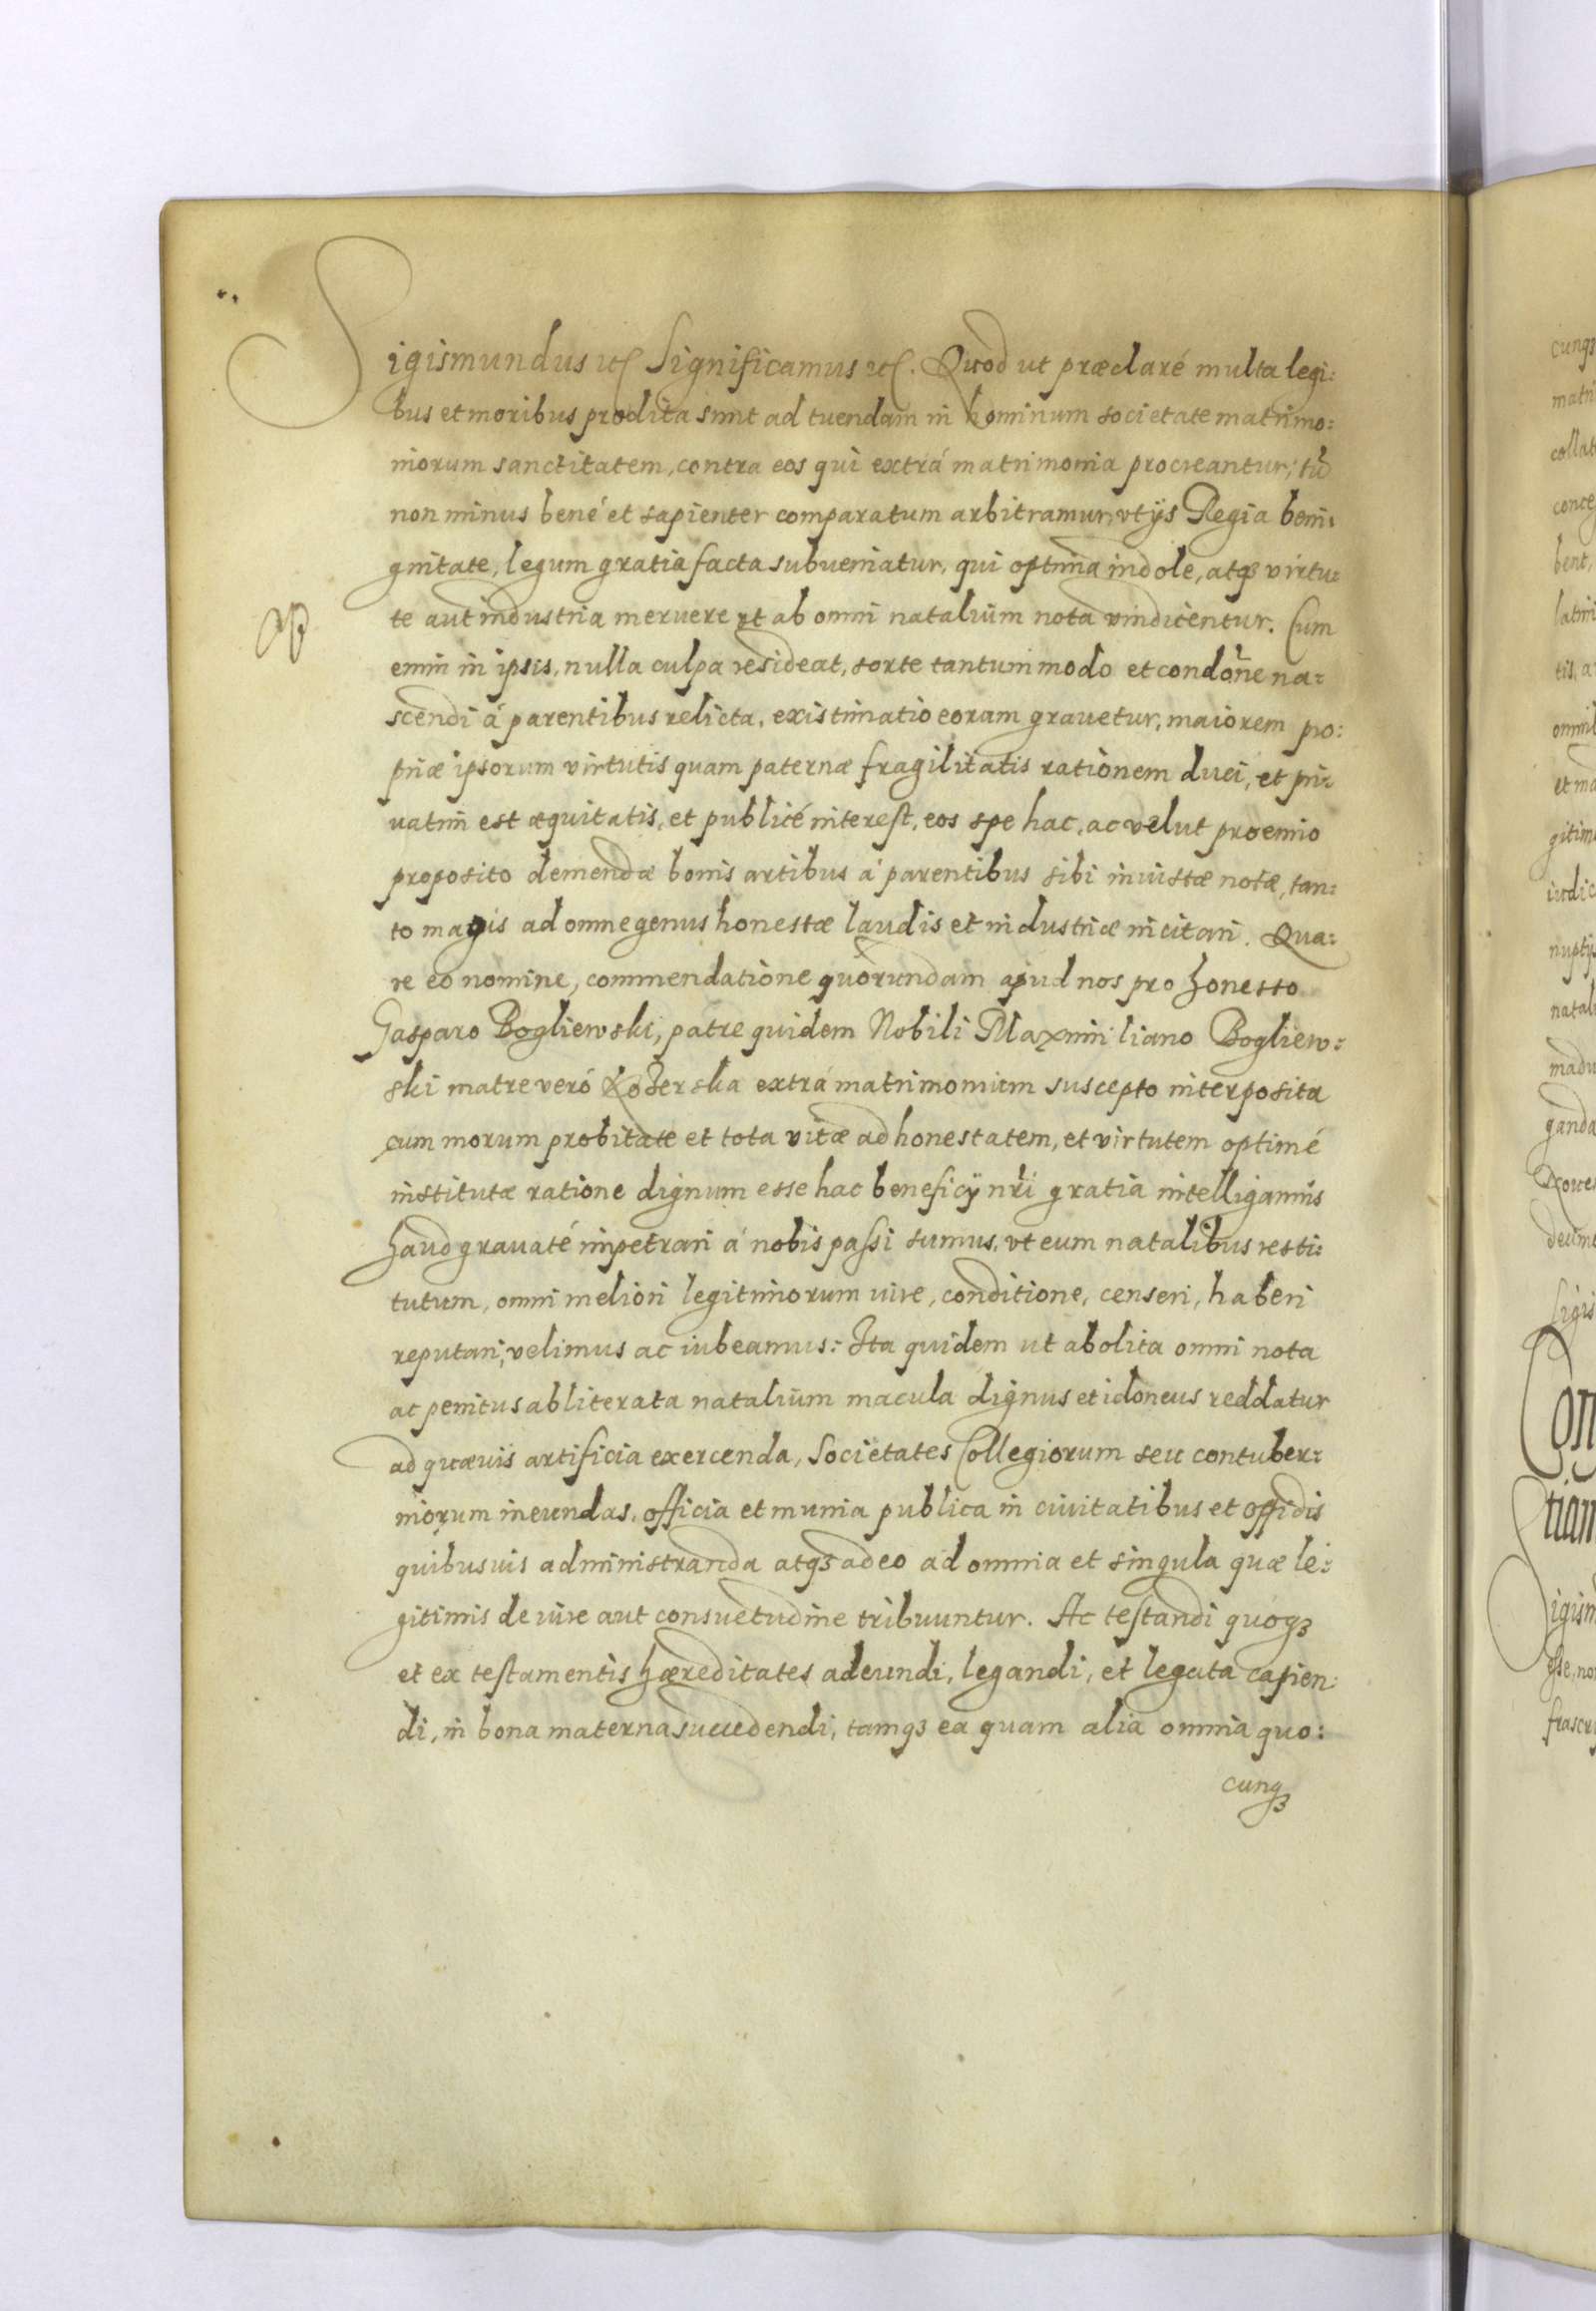 Sigismundus etc Significamus etc. Quod ut præclaré multa legi:
bus et moribus prodita sunt ad tuendam in hominum societate matrimo:
niorum sanctitatem, contra eos qui extrá matrimonia procreantur; tũ
non minus bené et sapienter comparatum arbitramur, vt ijs Regia beni:
gnitate, legum gratia facta subueniatur, qui optima indole, atqꝫ virtu:
te aut industria meruere vt ab omni natalium nota vindicentur. Cum
enim in ipsis, nulla culpa resideat, sorte tantummodo et condõne na:
scendi á parentibus relicta, existimatio eorum grauetur, maiorem pro:
priæ ipsorum virtutis quam paternæ fragilitatis rationem duci, et pri:
uatim est æquitatis, et publicé interest, eos spe hac, ac velut proemio
proposito demendæ bonis artibus á parentibus sibi inustæ notæ, tan:
to magis ad omne genus honestæ laudis et industriæ incitari. Qua:
re eo nomine, commendatione quorundam apud nos pro honesto
Gasparo Bogliewski, patre quidem Nobili Maximiliano Bogliew:
ski matre veró Koterska extrá matrimonium suscepto interposita
cum morum probitate et tota vitæ ad honestatem, et virtutem optimé
institutæ ratione dignum esse hac beneficij nr̃i gratia intelligamus
haud grauaté impetrari á nobis passi sumus, vt eum natalibus resti:
tutum, omni meliori legitimorum iure, conditione, censeri, haberi
reputari, velimus ac iubeamus: Ita quidem ut abolita omni nota
ac penitus abliterata natalium macula dignus et idoneus reddatur
ad quæuis artificia exercenda, Societates Collegiorum seu contuber:
niorum ineundas, officia et munia publica in ciuitatibus et oppidis
quibusuis administranda atqꝫ adeo ad omnia et singula quæ le:
gitimis de iure aut consuetudine tribuuntur. Ac testandi quoqꝫ
et ex testamentis hæreditates adeundi, legandi, et legata capien:
di, in bona materna succedendi, tamqꝫ ea quam alia omnia quo:
cunqꝫ